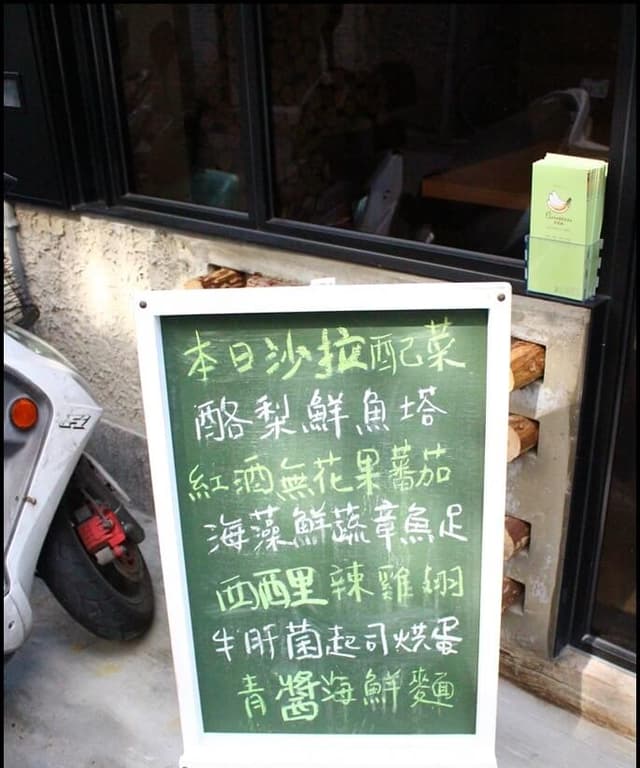 本日沙拉配菜
酪梨鮮魚塔
紅酒無花果蕃茄
海藻鮮蔬章魚足
西醒里辣雞翅
牛肝菌起司烘蛋
青醬海鮮麵